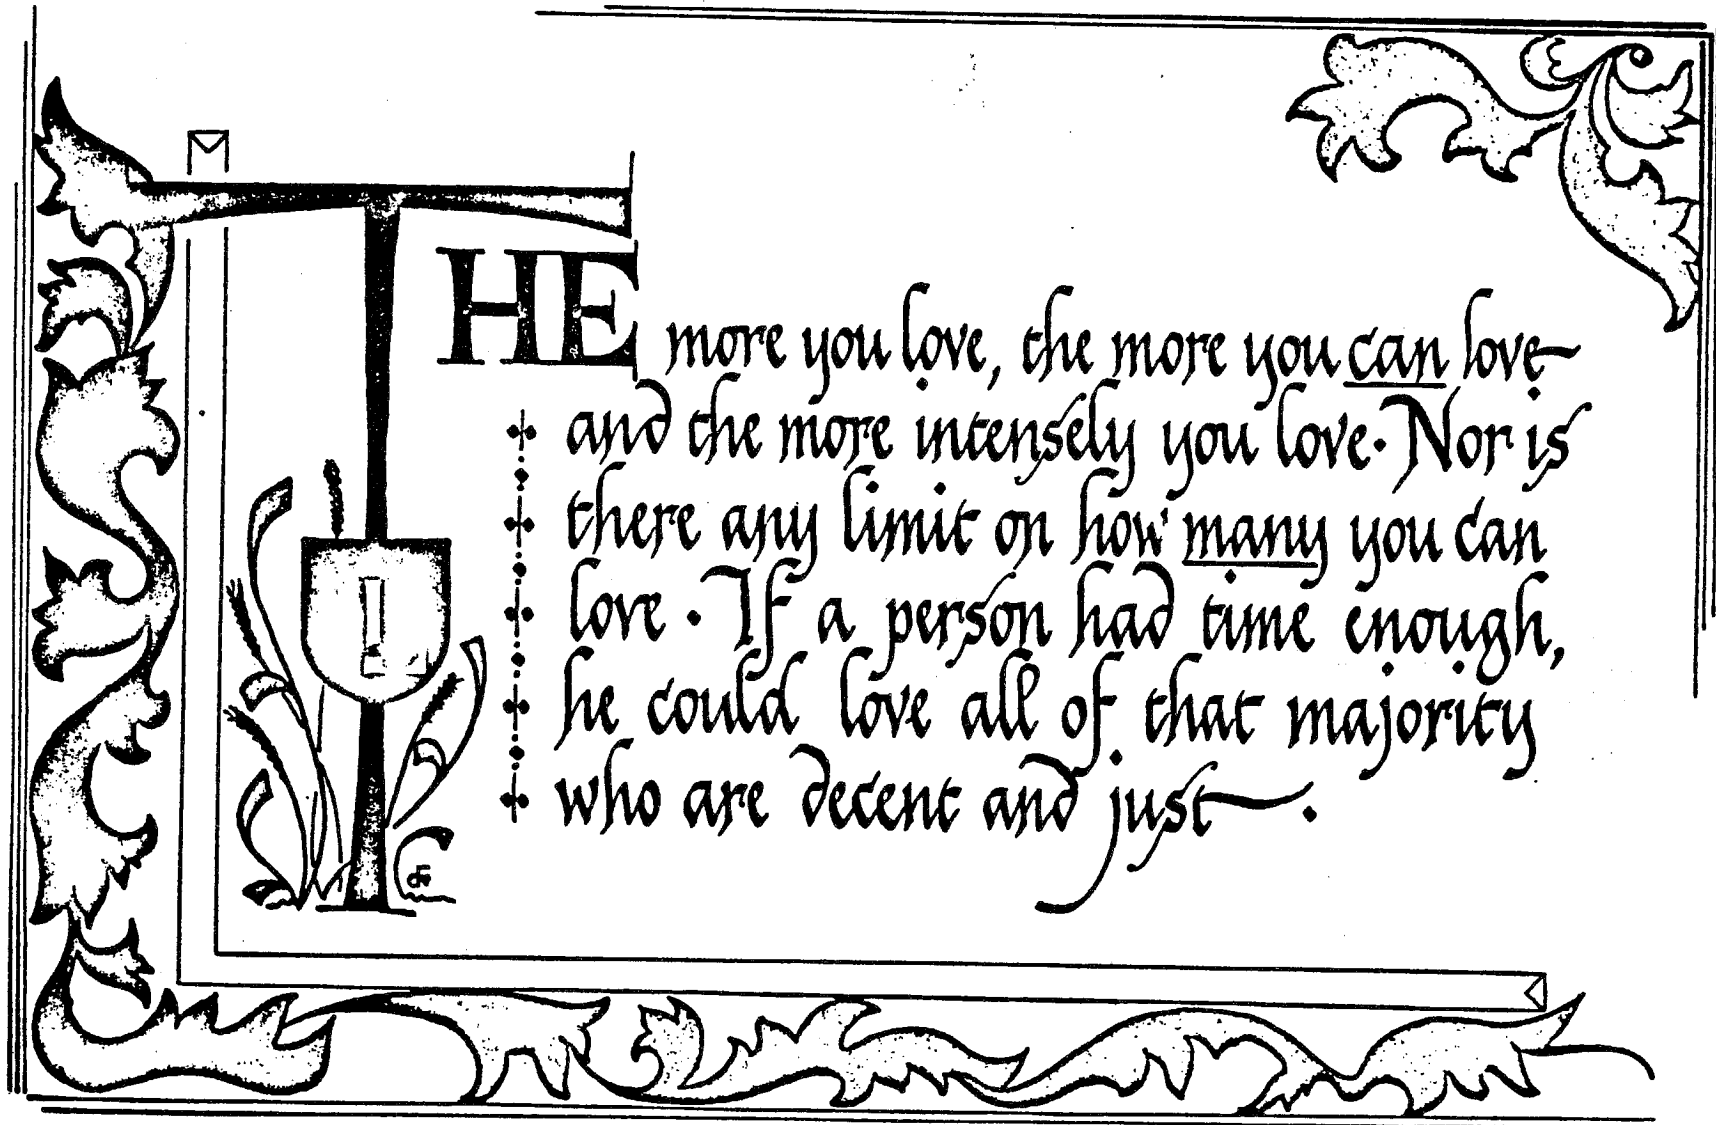 THE more you love, the more you can love
and the more intensely you love. Nor is
there any limit on how many you can
love. If a person had time enough,
he could love all of that majority
who are decent and just.